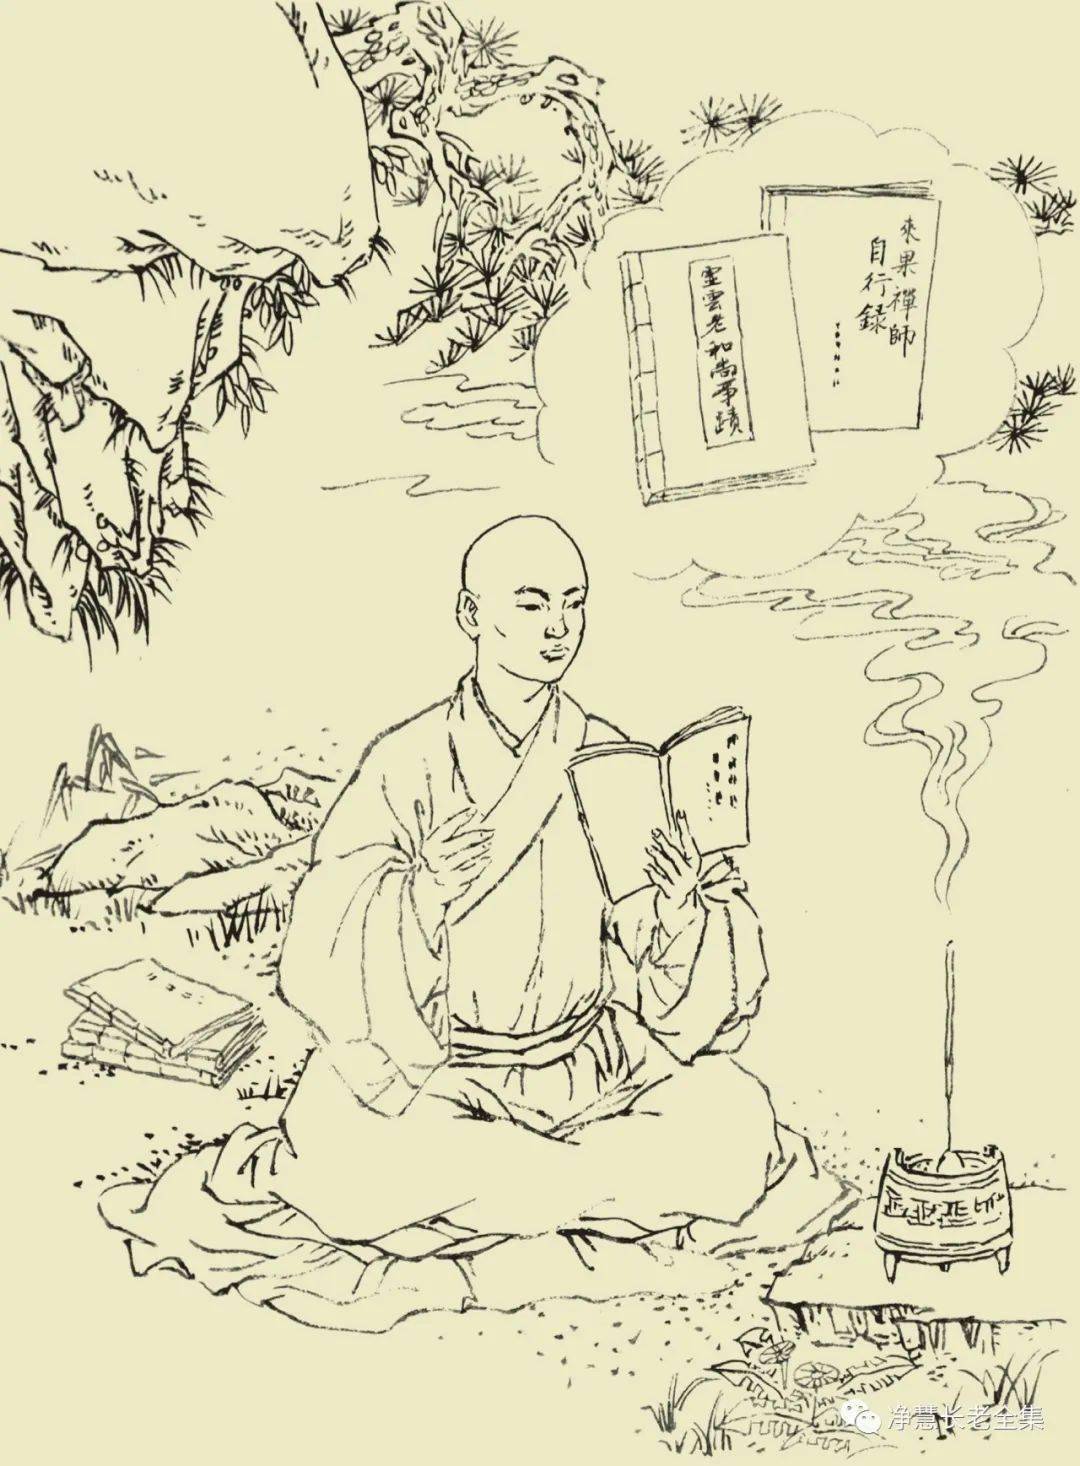 來果禪師
自行録
虚雲老和尚事蹟
净慧长老全集